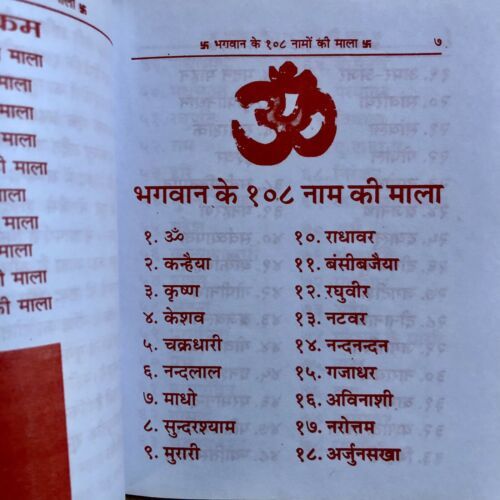 माला 卐
कम
माला
माला
माला
माला
ी माला
माला
माला
ी माला
की माला
卐 भगवान के १०८ नामों की माला 卐
७
ॐ
भगवान के १०८ नाम की माला
१. ॐ
२. कन्हैया
३. कृष्ण
४. केशव
५. चक्रधारी
६. नन्दलाल
७. माधो
८. सुन्दरश्याम
९. मुरारी
१०. राधावर
११. बंसीबजैया
१२. रघुवीर
१३. नटवर
१४. नन्दनन्दन
१५. गजाधर
१६. अविनाशी
१७. नरोत्तम
१८. अर्जुनसखा